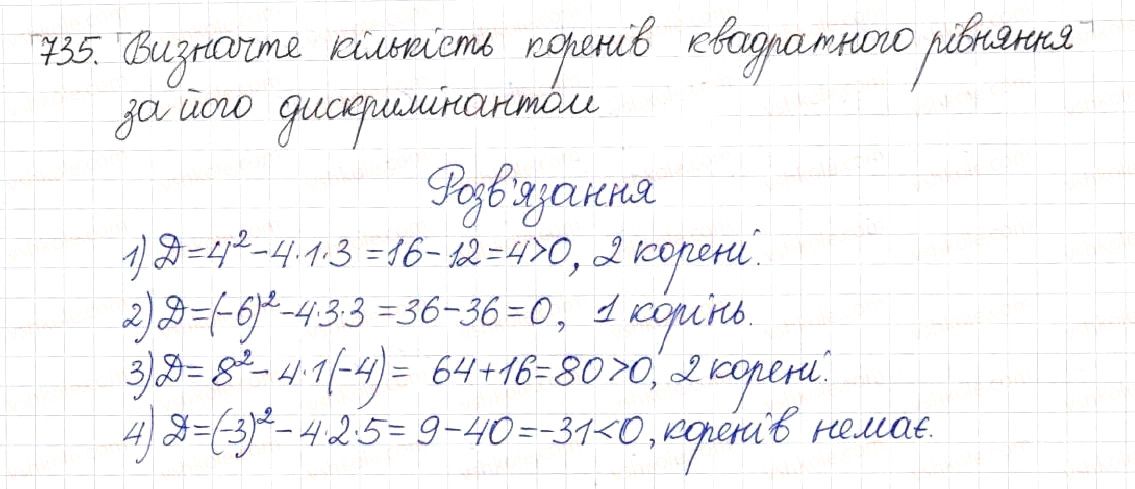 735. Визначте кількість коренів квадратного рівняння
за його дискримінантом
Розв'язання
1) Д=4²-4·1·3=16-12=4>0, 2 корені.
2) Д=(-6)²-4·3·3=36-36=0, 1 корінь.
3) Д=8²-4·1(-4)= 64+16=80>0, 2 корені.
4) Д=(-3)²-4·2·5=9-40=-31<0, коренів немає.